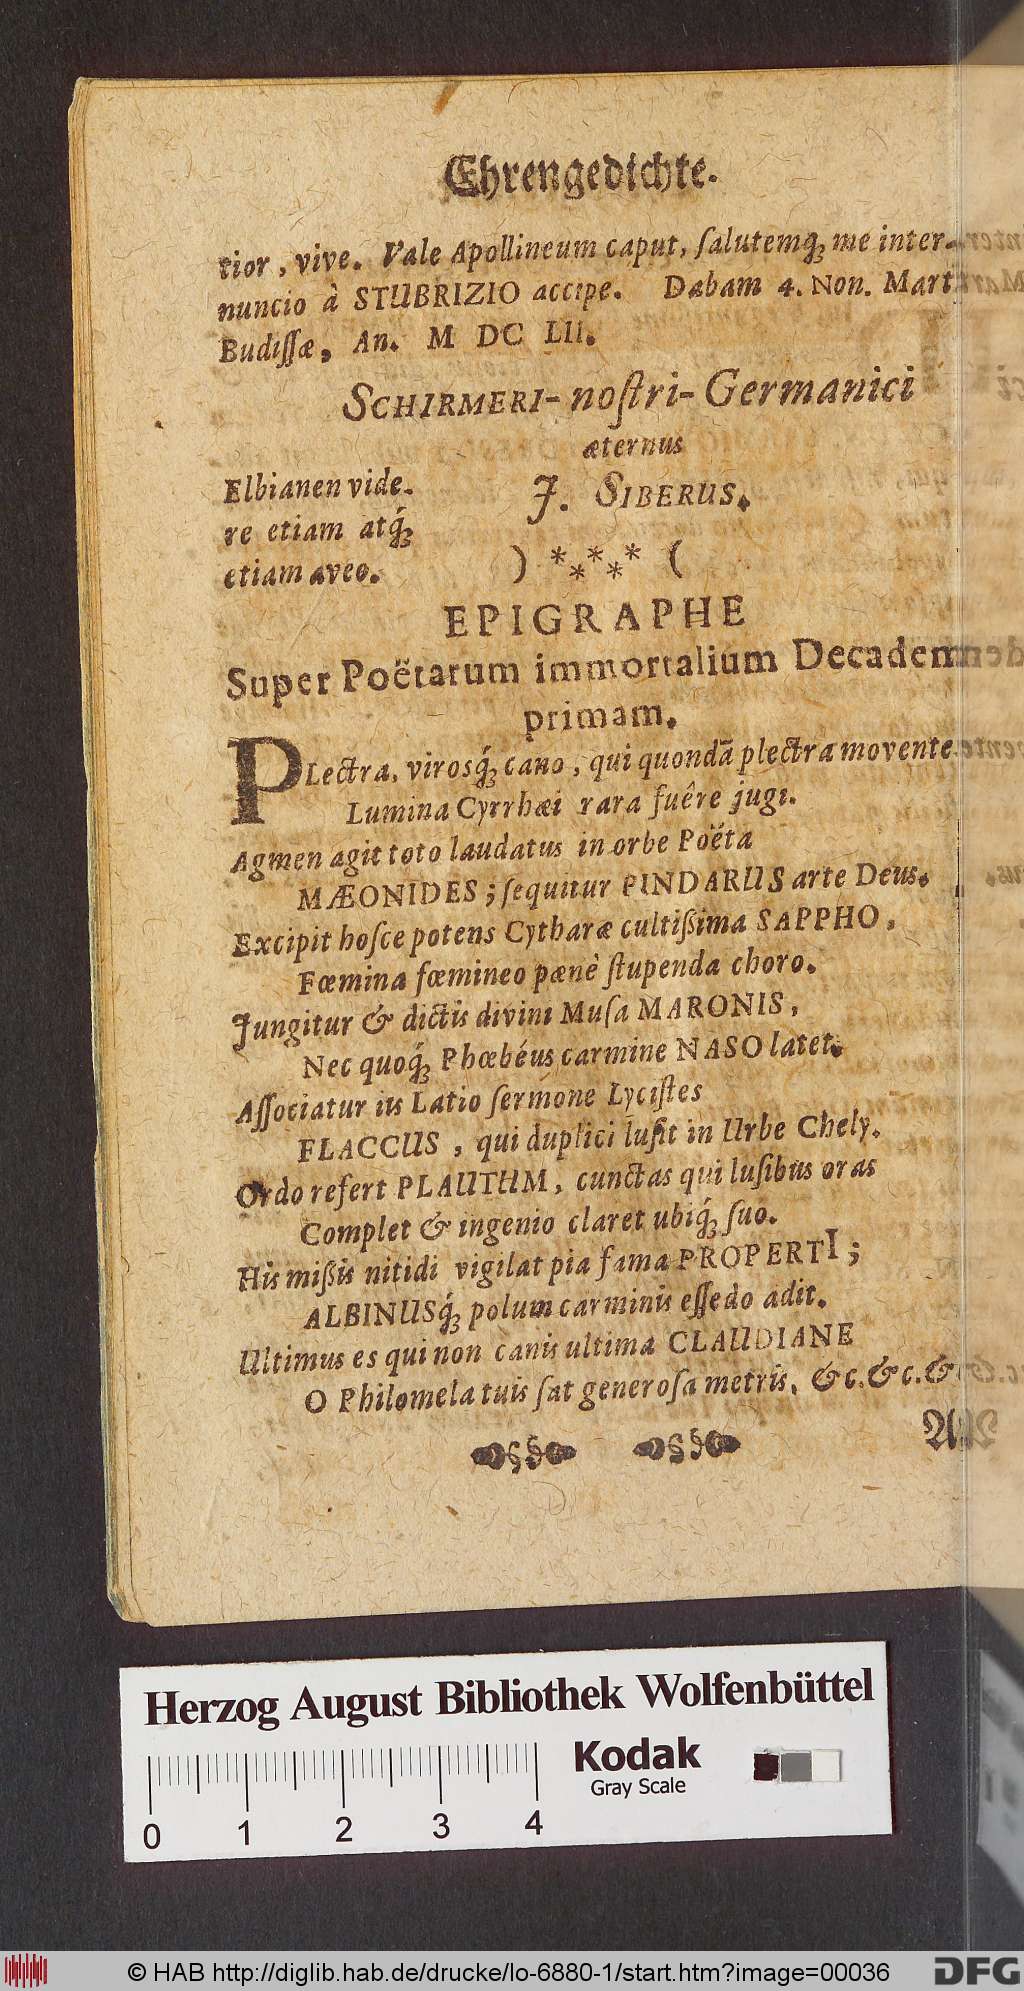 Ehrengedichte.
tior, vive. Vale Apollineum caput, ſalutemq́; me inter-
nuncio à STUBRIZIO accipe. Dabam 4. Non. Mart.
Budiſſæ, An. M DC LII.
SCHIRMERI- noſtri- Germanici
æternus
Elbianen vide-
J. SIBERUS.
re etiam atq́;
etiam aveo.
) ***** (
EPIGRAPHE
Super Poëtarum immortalium Decadem
primam.
PLectra, virosq́; cano, qui quondã plectra movente
Lumina Cyrrhæi rara fuêre jugi.
Agmen agit toto laudatus in orbe Poëta
MÆONIDES; ſequitur PINDARUS arte Deus.
Excipit hoſce potens Cytharæ cultißima SAPPHO,
Fœmina fœmineo pænè ſtupenda choro.
Jungitur & dictis divini Muſa MARONIS,
Nec quoq́; Phœbéus carmine NASO latet.
Aſſociatur iis Latio ſermone Lyciſtes
FLACCUS, qui duplici luſit in Urbe Chely.
Ordo refert PLAUTUM, cunctas qui luſibus oras
Complet & ingenio claret ubiq́; ſuo.
His mißis nitidi vigilat pia fama PROPERTI;
ALBINUSq́; polum carminis eſſedo adit.
Ultimus es qui non canis ultima CLAUDIANE
O Philomela tuis ſat generoſa metris, &c.&c.&
Herzog August Bibliothek Wolfenbüttel
Kodak
Gray Scale
0 1 2 3 4
© HAB http://diglib.hab.de/drucke/lo-6880-1/start.htm?image=00036
DFG